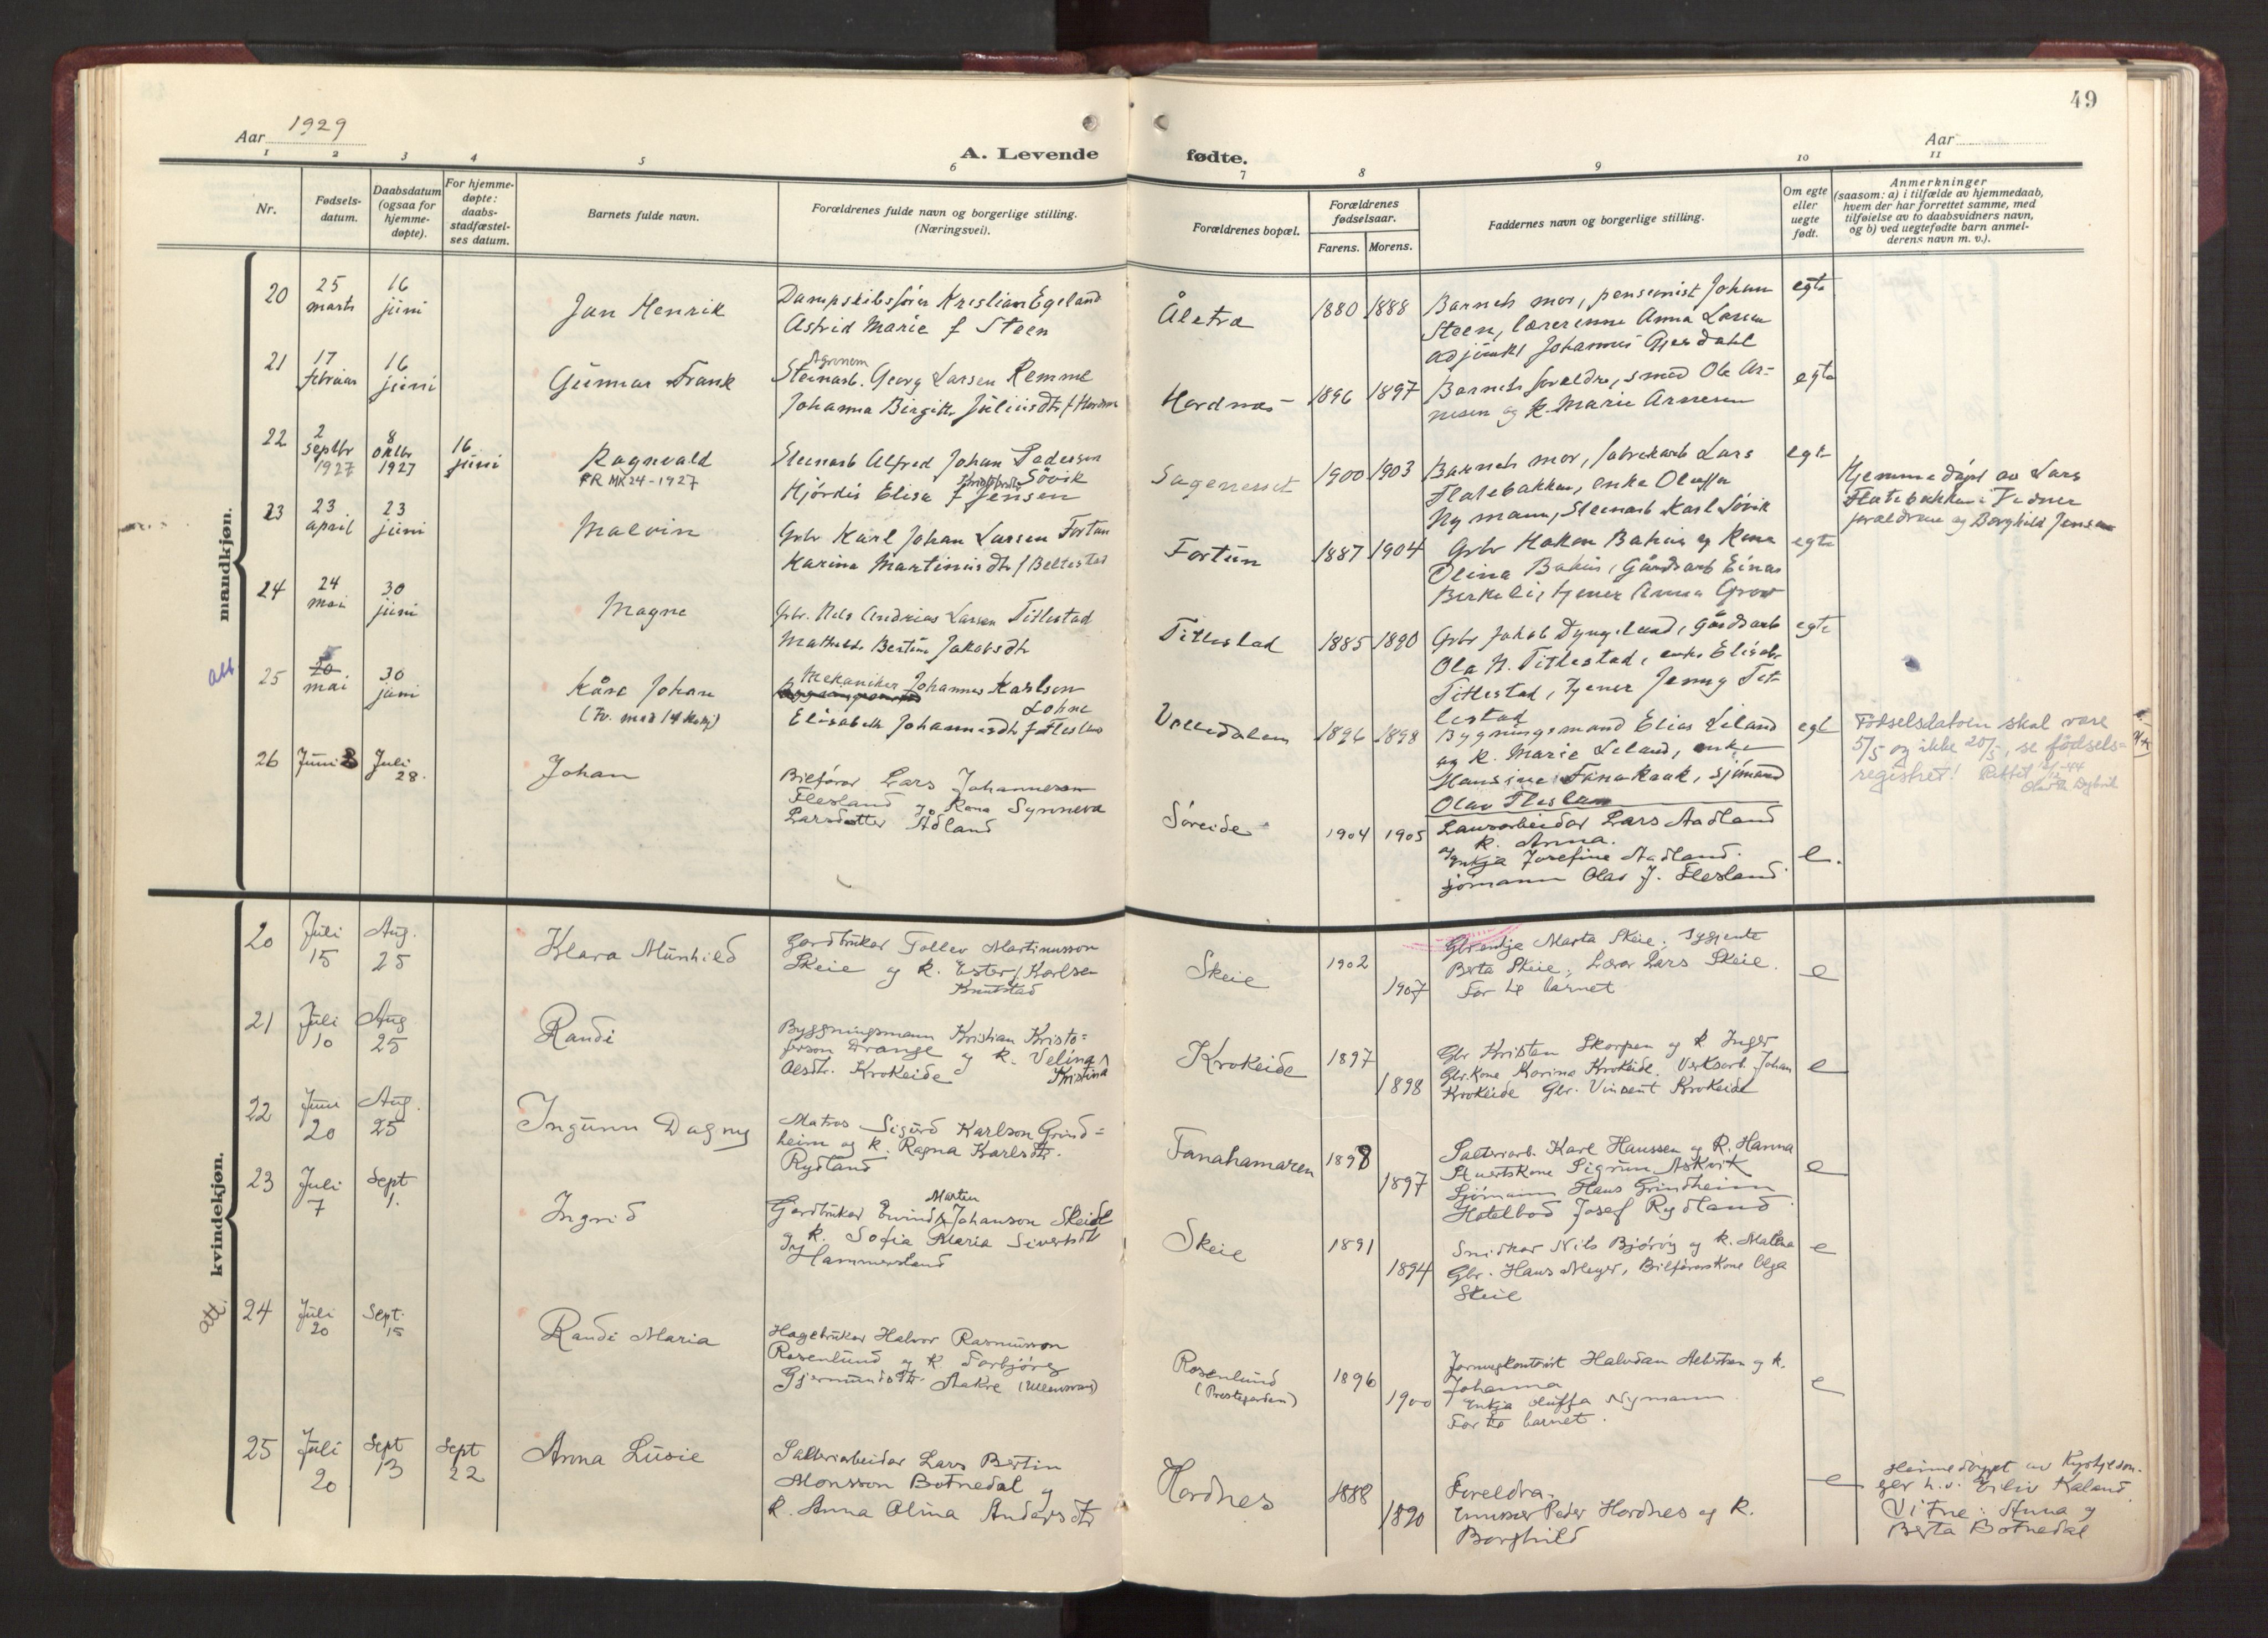 49
Aar 1929
A. Levende fødte.
Aar
1 2 3 4 5 6 7 8 9 10 11
Nr.
Fødsels-
datum.
Daabsdatum
(ogsaa for
hjemme-
døpte).
For hjemme-
døpte:
daabs-
stadfæstel-
ses datum.
Barnets fulde navn.
Forældrenes fulde navn og borgerlige stilling.
(Næringsvei).
Forældrenes bopæl.
Forældrenes
fødselsaar.
Farens. Morens.
Faddernes navn og borgerlige stilling.
Om egte
eller
uegte
født.
Anmerkninger
(saasom: a) i tilfælde av hjemmedaab,
hvem der har forrettet samme, med
tilføielse av to daabsvidners navn,
og b) ved uegtefødte barn anmel-
derens navn m. v.).
mandkjøn.
20
25
marts
16
juni
Jan Henrik
Dampskibsfører Kristian Egeland
Astrid Marie f Steen
Åletræ
1880 1888
Barnets mor, pensionist Johan
Steen, lærerinne Anna Larsen
adjunkt Johannes Gjerdahl
egte
21
17
februar
16
juni
Gunnar Frank
Agronom
Stenarb. Georg Larsen Remme
Johanna Birgitte Juliusdtr f Hordnes
Hordnæs
1896 1897
Barnets foreldre, smed Ole Ar-
nesen og k. Marie Arnesen
egte
22
2
septbr
1927
8
oktbr
1927
16
juni
Ragnvald
FR MK 24-1927
Stenarb Alfred Johan Pedersen
Søvik
Hjördis Elisa f Jensen
Sagenesset
1900 1903
Barnets mor, fabrikarb Lars
Flatebakken, enke Oluffa
Nymann, Stenarb Karl Søvik
egte
Hjemmedøpt av Lars
Flatebakken Vidner
foreldrene og Borghild Jensen
23
23
april
23
juni
Malvin
Gbr Karl Johan Larsen Fortun
Karina Martinusdtr f Beltestad
Fortun
1887 1904
Gbr Hakon Bahus og Kona
Olina Bahus, Gårdsarb Einar
Birkeli, tjener Anna Grov
egte
24
24
mai
30
juni
Magne
Gbr. Nels Andreas Larsen Titlestad
Mathilde Bertine Jakobsdtr
Titlestad
1885 1890
Gbr Jakob Dyngeland, Gårdsarb
Ola N. Titlestad, enke Elisabe
Titlestad, Tjener Jenny Tit-
lestad
egte
att.
25
20
5
mai
30
juni
Kåre Johan
Mekaniker Johannes Karlsen
Lohne
Elisabeth Johannesdtr f Flesland
1896 1898
Bygningsmand Elias Leland
og k. Marie Leland, enke
Hansine Fanakaak, sjömand
Olav Flesland
egte
Fødselsdatoen skal være
5/5 og ikke 20/5, se fødsels-
registret! Rettet
26
Juni 3
Juli
28.
Johan
Bilförar Lars Johannesson
Flesland og Kona Synneva
Larsdotter Ådland
Søreide
1904 1905
Lausarbeidar Lars Aadland
og k. Anna.
Enkja Josefine Aadland.
sjømann Olav J. Flesland
e.
kvindekjøn.
20
Juli
15
Aug.
25
Klara Munhild
Gardbrukar Tollev Martinusson
Skeie og k. Ester f Karlsen
Knutstad
Skeie
1902
1907
Gbr.enkja Marta Skeie, Sygjente
Berta Skeie, Lærar Lars Skeie.
Far til barnet
e
21
Juli
10
Aug
25
Randi
Byggningsmann Kristian Kristo-
ferson Drange og k. Velina
Kristina
Olesdtr. Krokeide
Krokeide
1897
1898
Gbr Kristen Skorpen og k Inger
Gbr.kone Karina Krokeide, Verksarb. Johan
Krokeide Gbr. Vincent Krokeide
e
22
Juni
20
Aug.
25
Ingunn Dagny
Matros Sigurd Karlson Grind-
heim og k. Ragna Karlsdtr.
Rydland
Fanahamaren
1898
1897
Salteriarb. Karl Hanssen og k. Hanna
Stuertskone Sigrun Askvik
Sjømann Hans Grindheim
Hotelbod Josef Rydland
e
23
Juli
7
Sept
1.
Ingrid
Martin
Gardbrukar Eivind Johanson Skeie
og k. Sofia Maria Sivertsdtr
Hammersland
Skeie
1891
1894
Snidkar Nils Bjørøy og k. Malena
Gbr. Hans Meyer, Bilførarskone Olga
Skeie
e
att.
24
Juli
20
Sept.
15
Randi Maria
Hagebrukar Halvor Rasmusson
Rosenlund og k. Torbjørg
Gjermundsdtr. Aakre (Ullensvang)
Rosenlund
(Prestegarden)
1896
1900
Halvdan og k.
Johanna
Enkja Oluffa Nymann
Far til barnet.
e
25
Juli
20
Sept
13
Sept
22
Anna Lusie
Salteriarbeidar Lars Bertin
Monsson Botnedal og
k. Anna Olina Andersdtr
Hordnes
1888
1890
Foreldra.
Peder Hordnes og k.
Borghild
e
Heimedøypt av
h.v. Eiliv Kaland.
Vitne: Anna og
Berta Botnedal